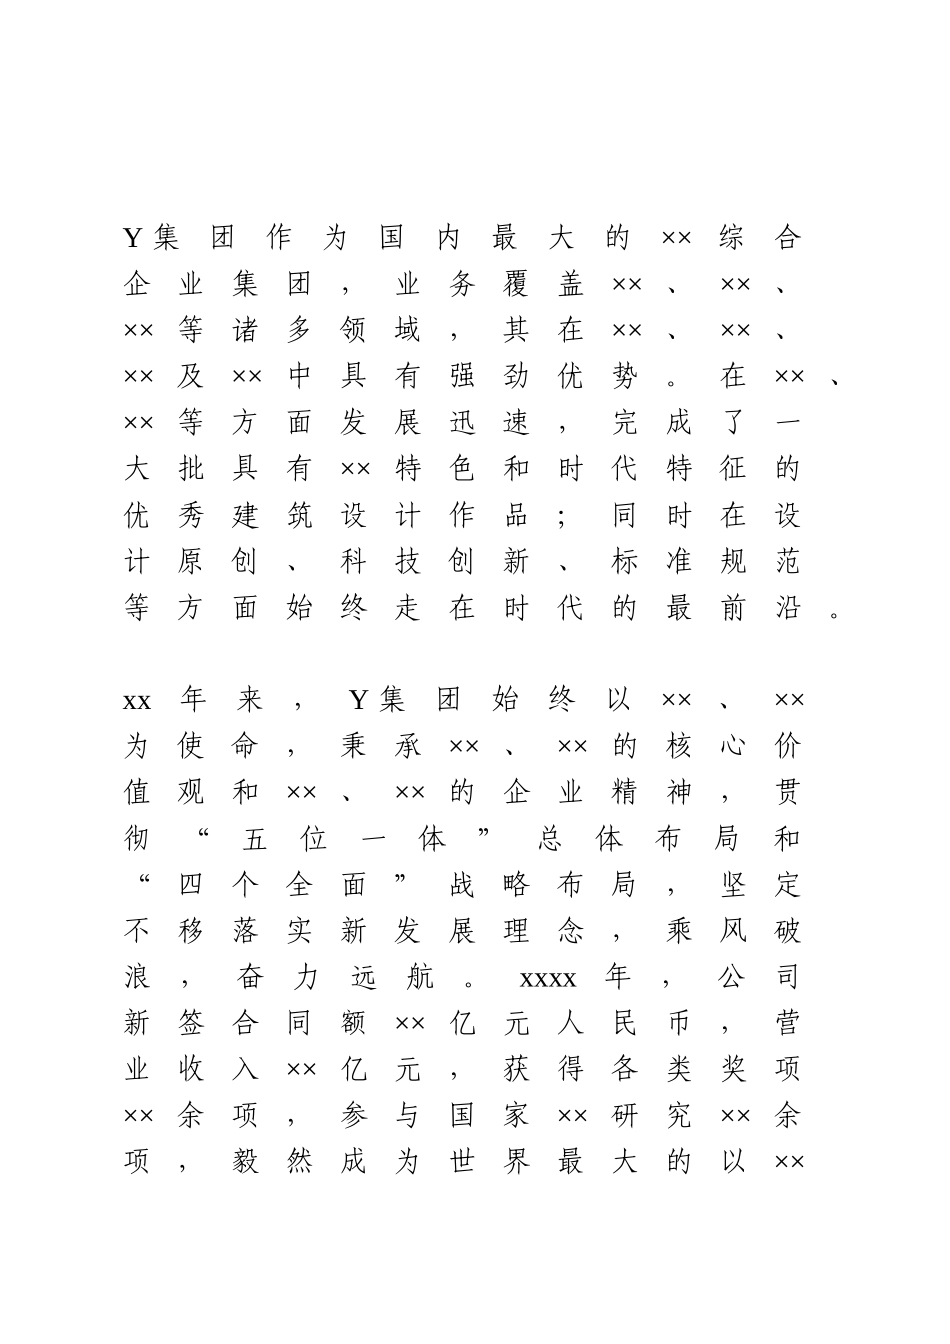 Y集团作为国内最大的××综合
企业集团，业务覆盖××、××、
××等诸多领域，其在××、××、
××及××中具有强劲优势。在××、
××等方面发展迅速，完成了一
大批具有××特色和时代特征的
优秀建筑设计作品；同时在设
计原创、科技创新、标准规范
等方面始终走在时代的最前沿。
xx年来，Y集团始终以××、××
为使命，秉承××、××的核心价
值观和××、××的企业精神，贯
彻“五位一体”总体布局和
“四个全面”战略布局，坚定
不移落实新发展理念，乘风破
浪，奋力远航。xxxx年，公司
新签合同额××亿元人民币，营
业收入××亿元，获得各类奖项
××余项，参与国家××研究××余
项，毅然成为世界最大的以××